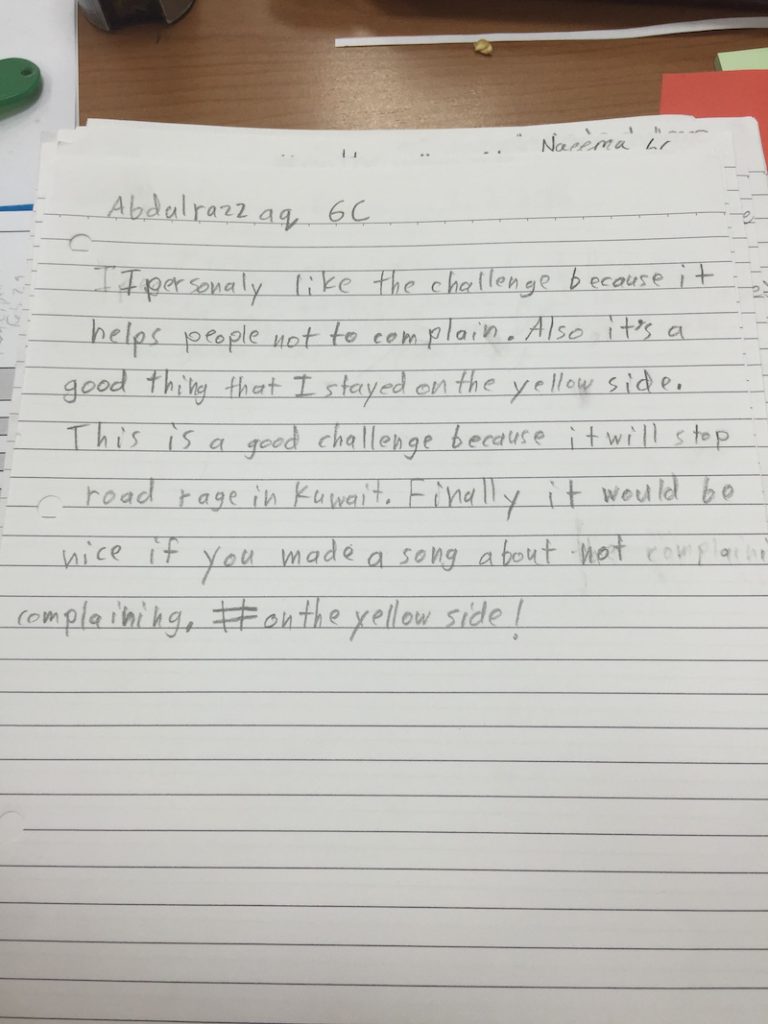 Naeema
Abdulrazzaq 6C
I I personaly like the challenge because it
helps people not to complain. Also it's a
good thing that I stayed on the yellow side.
This is a good challenge because it will stop
road rage in Kuwait. Finally it would be
nice if you made a song about not complaini
complaining. #on the yellow side!